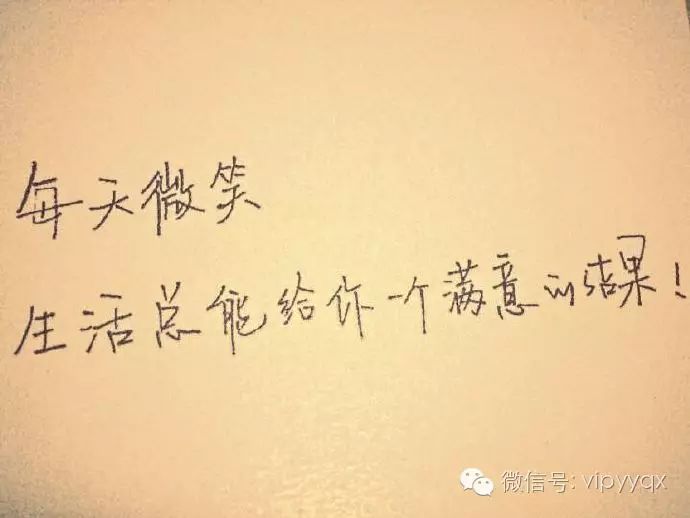 每天微笑
生活总能给你一个满意的结果!
微信号: vipyyqx